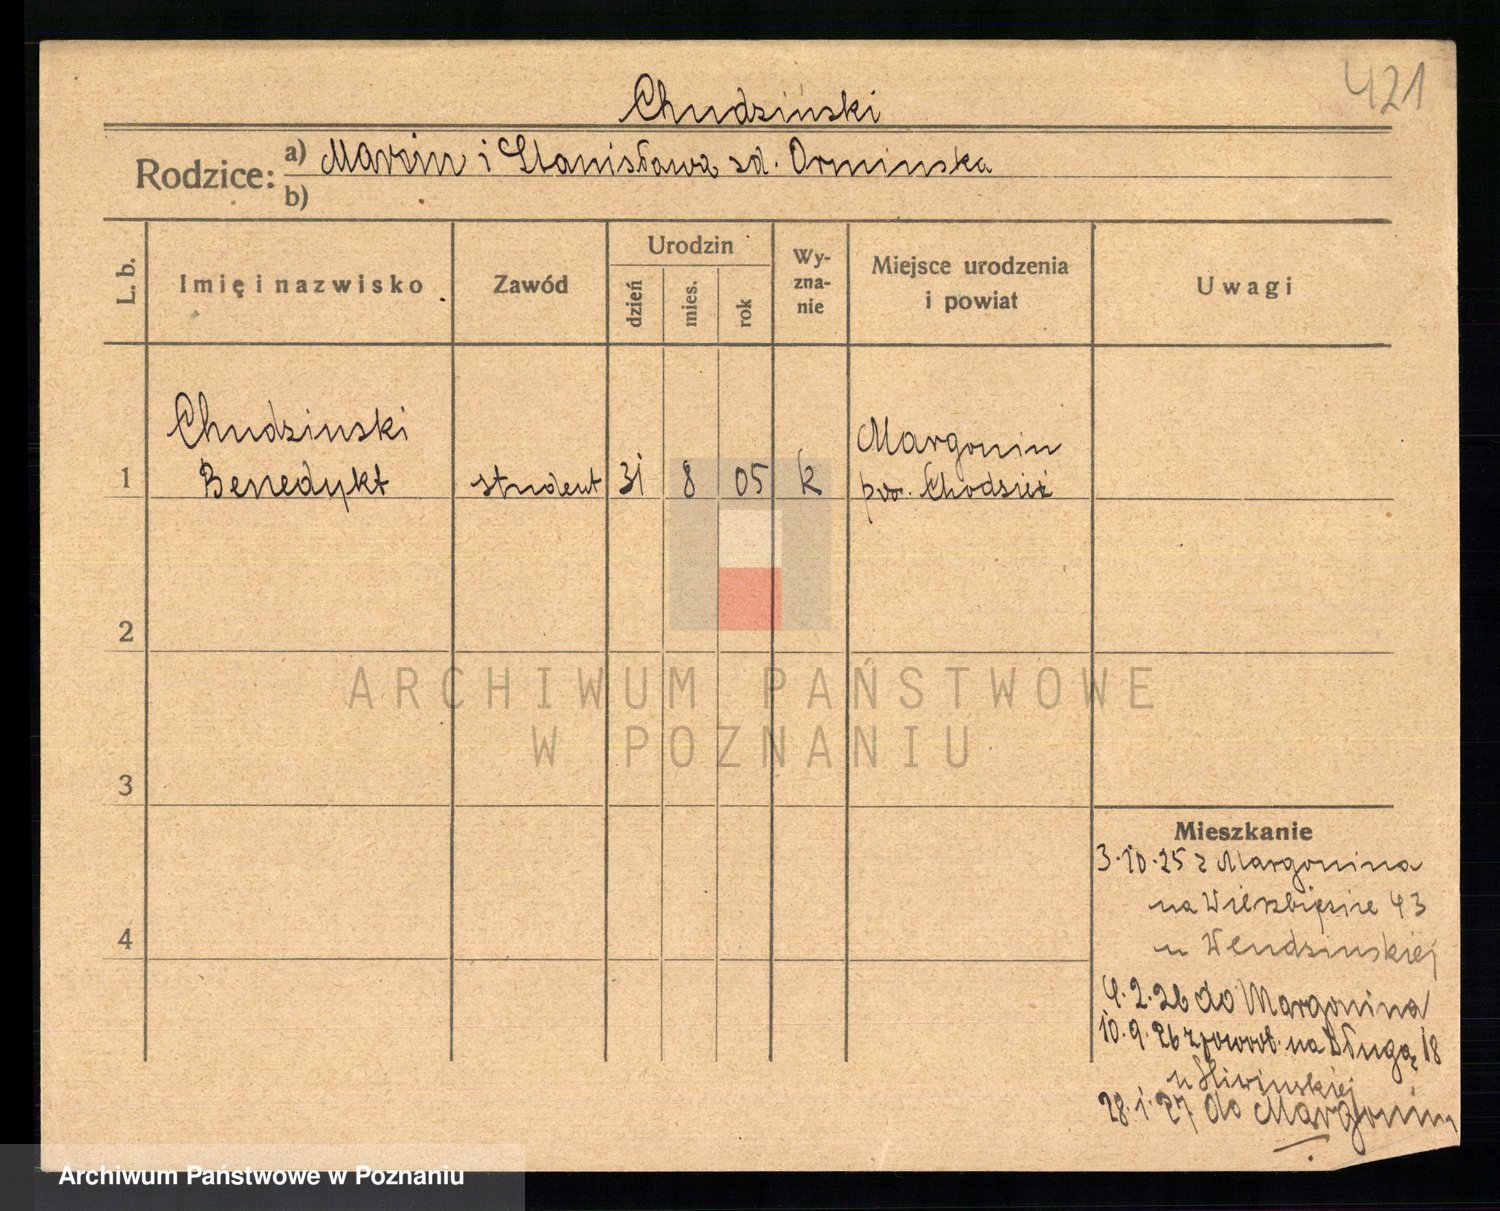 421
Chudziński
Rodzice: a) Marcin i Stanisława zd. Orminska
b)
L. b. Imię i nazwisko Zawód Urodzin dzień mies. rok Wyznanie Miejsce urodzenia i powiat Uwagi
Chudzinski Margonin
1 Benedykt student 31 8 05 k pow. Chodzież
2
3
4
Mieszkanie
3.10.25 z Margonina
na Wierzbięcice 43
u Wendzinskiej
4.2.26 do Margonina
10.9.26 z powrot. na Długą 18
u Śliwinskiej
28.1.27 do Margonin
ARCHIWUM PAŃSTWOWE
W POZNANIU
Archiwum Państwowe w Poznaniu